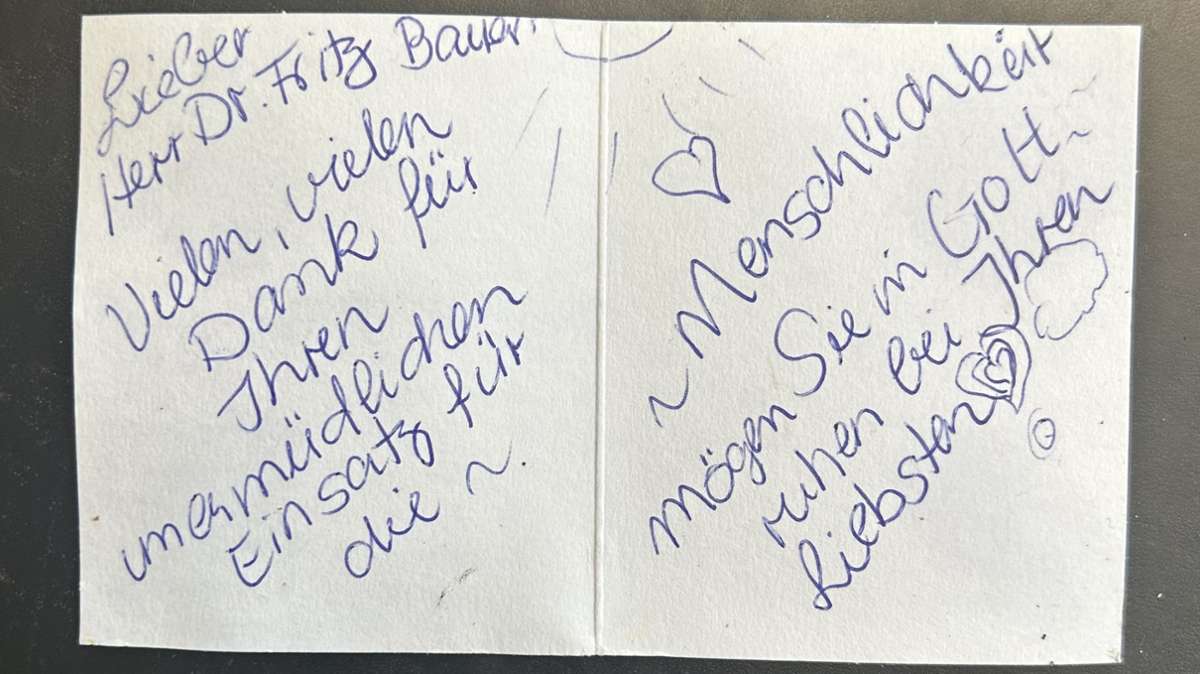 Lieber
Herr Dr. Fritz Bauer.
Vielen, vielen
Dank für
Ihren
unermüdlichen
Einsatz für
die ~
~ Menschlichkeit
mögen Sie in Gott ~
ruhen bei Ihren
Liebsten